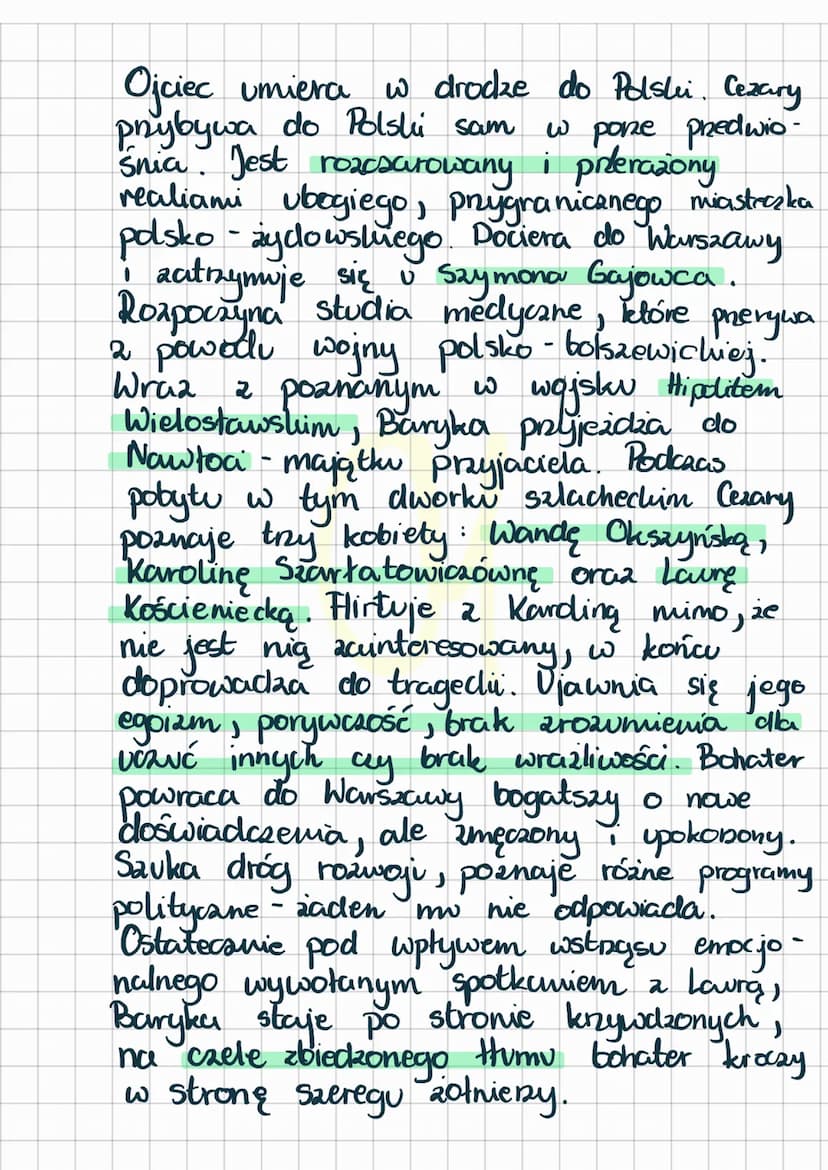 Ojciec umiera w drodze do Polski. Cezary
przybywa do Polski sam w porze przedwio-
śnia. Jest rozczarowany i przerażony
realiami ubogiego, przygranicznego miasteczka
polsko - żydowskiego. Dociera do Warszawy
i zatrzymuje się u Szymona Gajowca.
Rozpoczyna studia medyczne, które przerywa
z powodu wojny polsko - bolszewickiej.
Wraz z poznanym w wojsku Hipolitem
Wielosławskim, Baryka przyjeżdża do
Nawłoci - majątku przyjaciela. Podczas
pobytu w tym dworku szlacheckim Cezary
poznaje trzy kobiety: Wandę Okszyńską,
Karolinę Szarłatowiczównę oraz Laurę
Kościeniecką. Flirtuje z Karoliną mimo, że
nie jest nią zainteresowany, w końcu
doprowadza do tragedii. Ujawnia się jego
egoizm, porywczość, brak zrozumienia dla
uczuć innych czy brak wrażliwości. Bohater
powraca do Warszawy bogatszy o nowe
doświadczenia, ale zmęczony i upokorzony.
Szuka dróg rozwoju, poznaje różne programy
polityczne - żaden mu nie odpowiada.
Ostatecznie pod wpływem wstrząsu emocjo-
nalnego wywołanym spotkaniem z Laurą,
Baryka staje po stronie krzywdzonych,
na czele zbiedzonego tłumu bohater kroczy
w stronę szeregu żołnierzy.